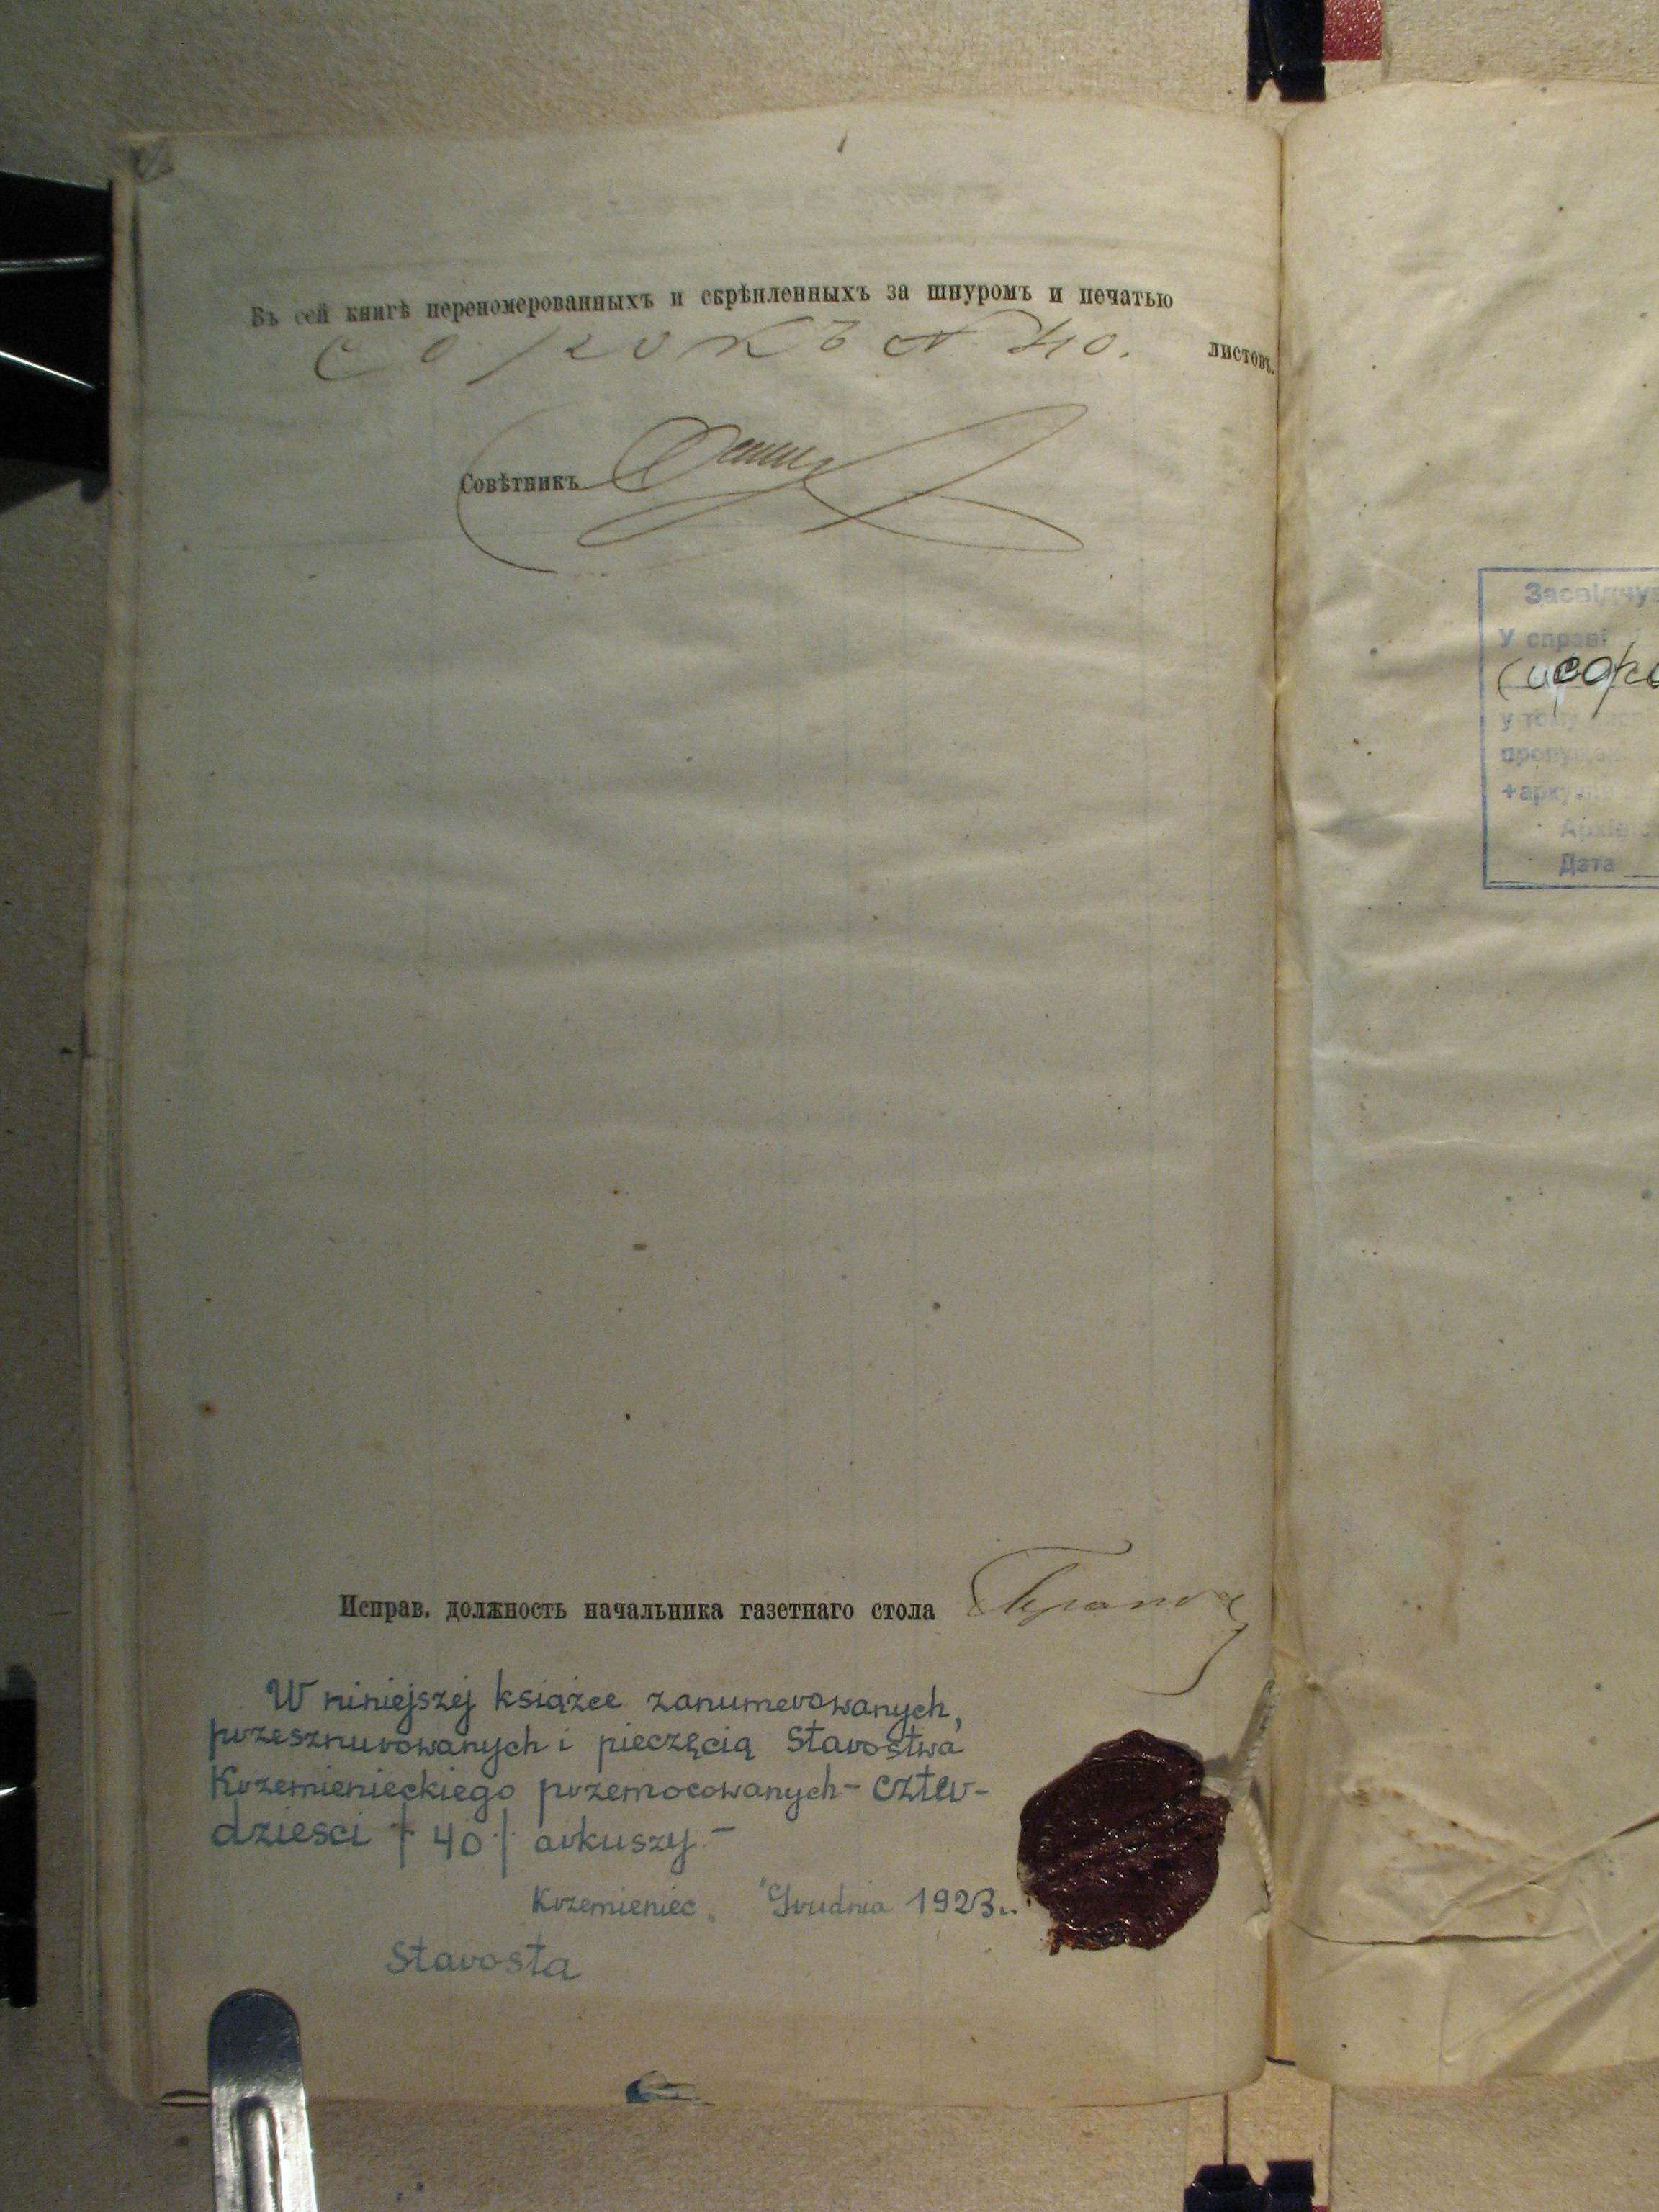 Въ сей книгѣ переномерованныхъ и скрѣпленныхъ за шнуромъ и печатью
сорокъ 40. листовъ.
Совѣтникъ
Исправ. должность начальника газетнаго стола
W niniejszej książce zanumerowanych,
przesznurowanych i pieczęcią Starostwa
Krzemienieckiego przemocowanych - czter-
dziesci / 40 / arkuszy. -
Krzemieniec „ " Grudnia 1923 r.
Starosta
Засвідчу
У справі
у тому
+арку
Дата